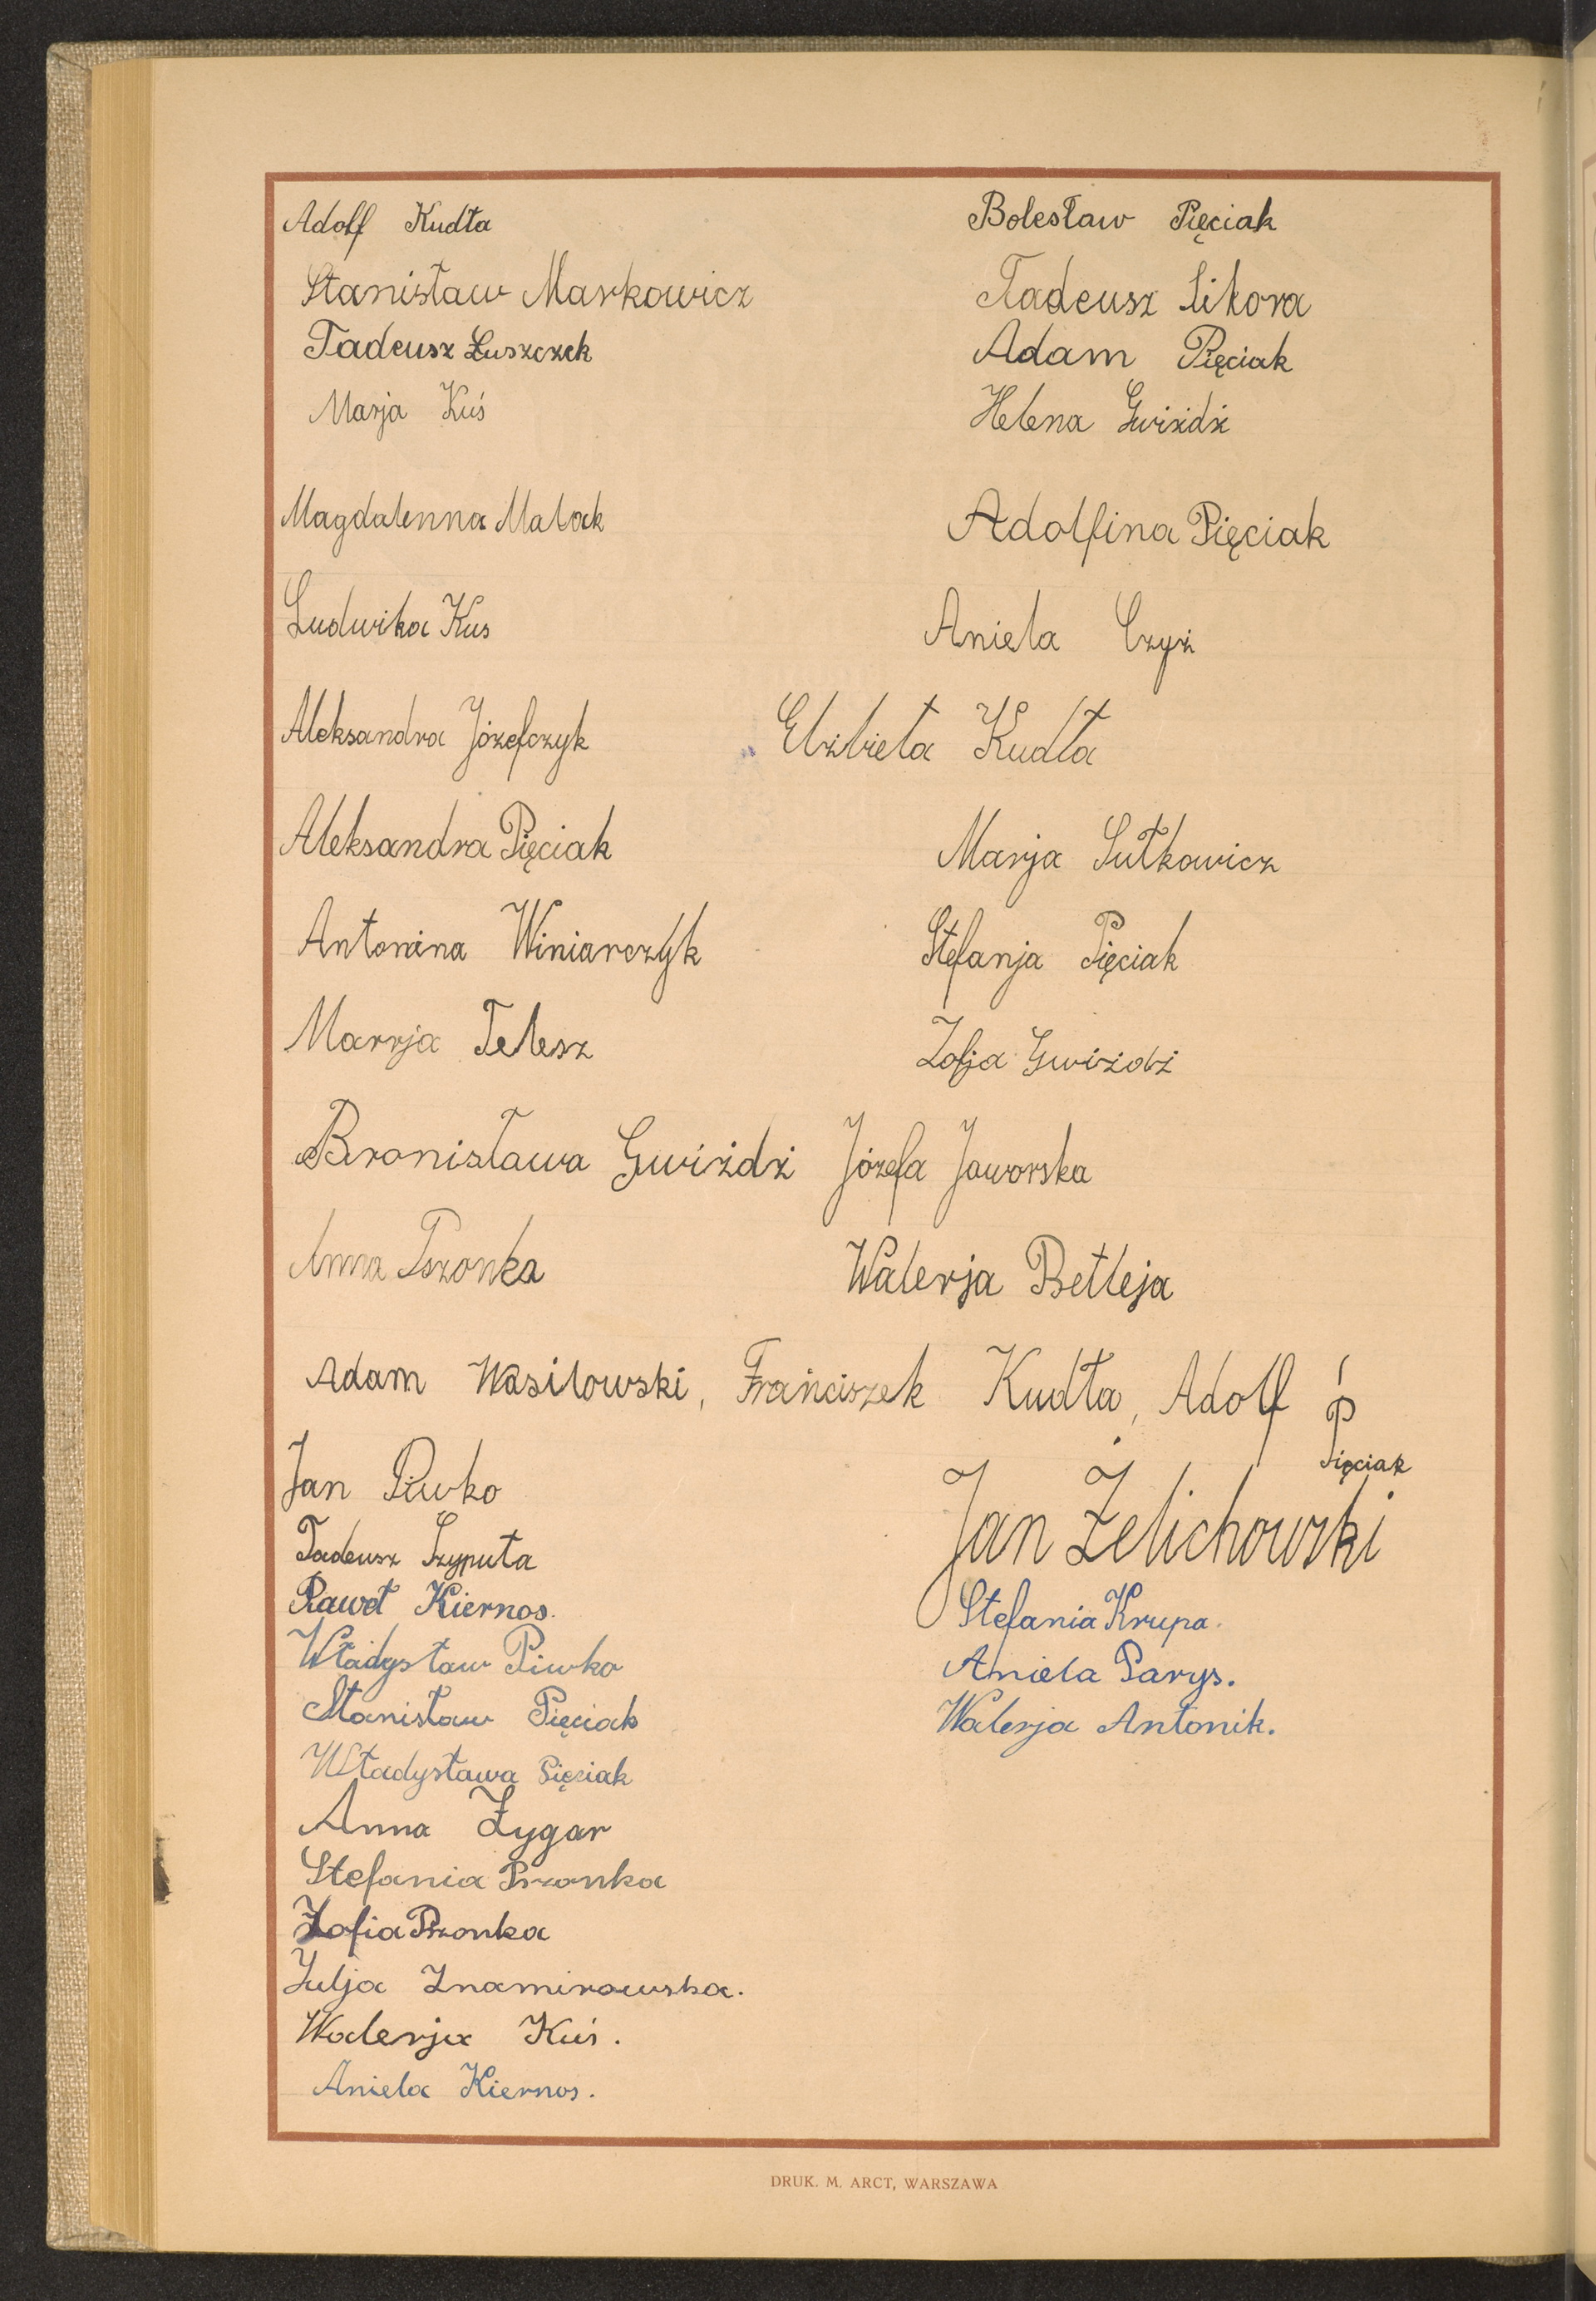 Adolf Kudła
Bolesław Pięciak
Stanisław Markowicz
Tadeusz Sikora
Tadeusz Łuszczek
Adam Pięciak
Marja Kuś
Helena Gwiżdż
Magdalenna Malak
Adolfina Pięciak
Ludwika Kus
Aniela Czyż
Aleksandra Józefczyk
Elżbieta Kudła
Aleksandra Pięciak
Marja Sutkowicz
Antonina Winiarczyk
Stefanja Pięciak
Marrja Telesz
Zofja Gwiżdż
Bronisława Gwiżdż Józefa Jaworska
Anna Pszonka
Walerja Betleja
Adam Wasilowski, Franciszek Kudła, Adolf P
Pięciak
Jan Piwko
Jan Żelichowski
Tadeusz Szyputa
Paweł Kiernos.
Stefania Krupa.
Władysław Piwko
Aniela Parys.
Stanisław Pięciak
Walerja Antonik.
Władysława Pięciak
Anna Żygar
Stefania Pszonka
Zofia Pszonka
Julja Znamirowska.
Walerja Kuś.
Aniela Kiernos.
DRUK. M. ARCT, WARSZAWA